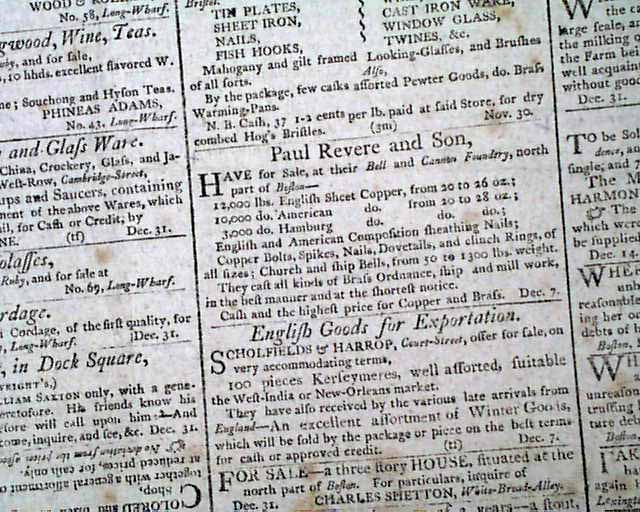 WOOD & 
No. 58, Long-Wharf.
Wine, Teas.
and for sale,
10 hhds. excellent flavored W.
Souchong and Hyson Teas.
PHINEAS ADAMS,
No. 43, Long-Wharf.
and Glaſs Ware.
China, Crockery, Glaſs, and Ja-
Weſt-Row, Cambridge-Street,
ups and Saucers, containing
ment of the above Wares, which
il, for Caſh or Credit, by
NE. (tf) Dec. 31.
olaſſes,
Ruby, and for ſale at
No. 69, Long-Wharf.
rdage.
Cordage, of the firſt quality, for
Long-Wharf. Dec. 31.
, in Dock Square,
WRIGHT's,)
LLIAM SAXTON only, with a gene-
eretofore. His friends know his
efore will call upon him :—And
come, inquire, and ſee, &c. Dec. 31.
at reduced prices, for caſh only.
together with a general aſſortment
Briſtol.
TIN PLATES,
SHEET IRON,
NAILS,
FISH HOOKS,
CAST IRON WARE,
WINDOW GLASS,
TWINES, &c.
Mahogany and gilt framed Looking-Glaſſes, and Bruſhes
of all ſorts. Alſo,
By the package, few caſks aſſorted Pewter Goods, do. Braſs
Warming-Pans.
N. B. Caſh, 37 1-2 cents per lb. paid at ſaid Store, for dry
combed Hog's Briſtles. (3m) Nov. 30.
Paul Revere and Son,
HAVE for Sale, at their Bell and Cannon Foundery, north
part of Boſton—
12,000 lbs. Engliſh Sheet Copper, from 20 to 26 oz.;
10,000 do. American do. from 20 to 28 oz.;
3,000 do. Hamburg do. do. do.;
Engliſh and American Compoſition ſheathing Nails;
Copper Bolts, Spikes, Nails, Dovetails, and clinch Rings, of
all ſizes; Church and ſhip Bells, from 50 to 1300 lbs. weight.
They caſt all kinds of Braſs Ordnance, ſhip and mill work,
in the beſt manner and at the ſhorteſt notice.
Caſh and the higheſt price for Copper and Braſs. Dec. 7.
Engliſh Goods for Exportation.
SCHOLFIELDS & HARROP, Court-Street, offer for ſale, on
very accommodating terms,
100 pieces Kerſeymeres, well aſſorted, ſuitable
the Weſt-India or New-Orleans market.
They have alſo received by the various late arrivals from
England—An excellent aſſortment of Winter Goods,
which will be ſold by the package or piece on the beſt terms
for caſh or approved credit. (tf) Dec. 7.
FOR SALE—a three ſtory HOUSE, ſituated at the
north part of Boſton. For particulars, inquire of
Dec. 31. CHARLES SHETTON, White-Bread-Alley.
years—a ſtout,
large ſcale,
the milking
the Farm
well acquain
without good
Dec. 31.
To be Sol
dence, an
ſingle; and
The M
HARMON
The
which were
be ſupplied
Dec. 14.
WHE
unh
reaſonabl
ing her
debts of
Boſton,
WH
unreaſon
truſting
ture debt
Boſton
TAK
again
Lexington